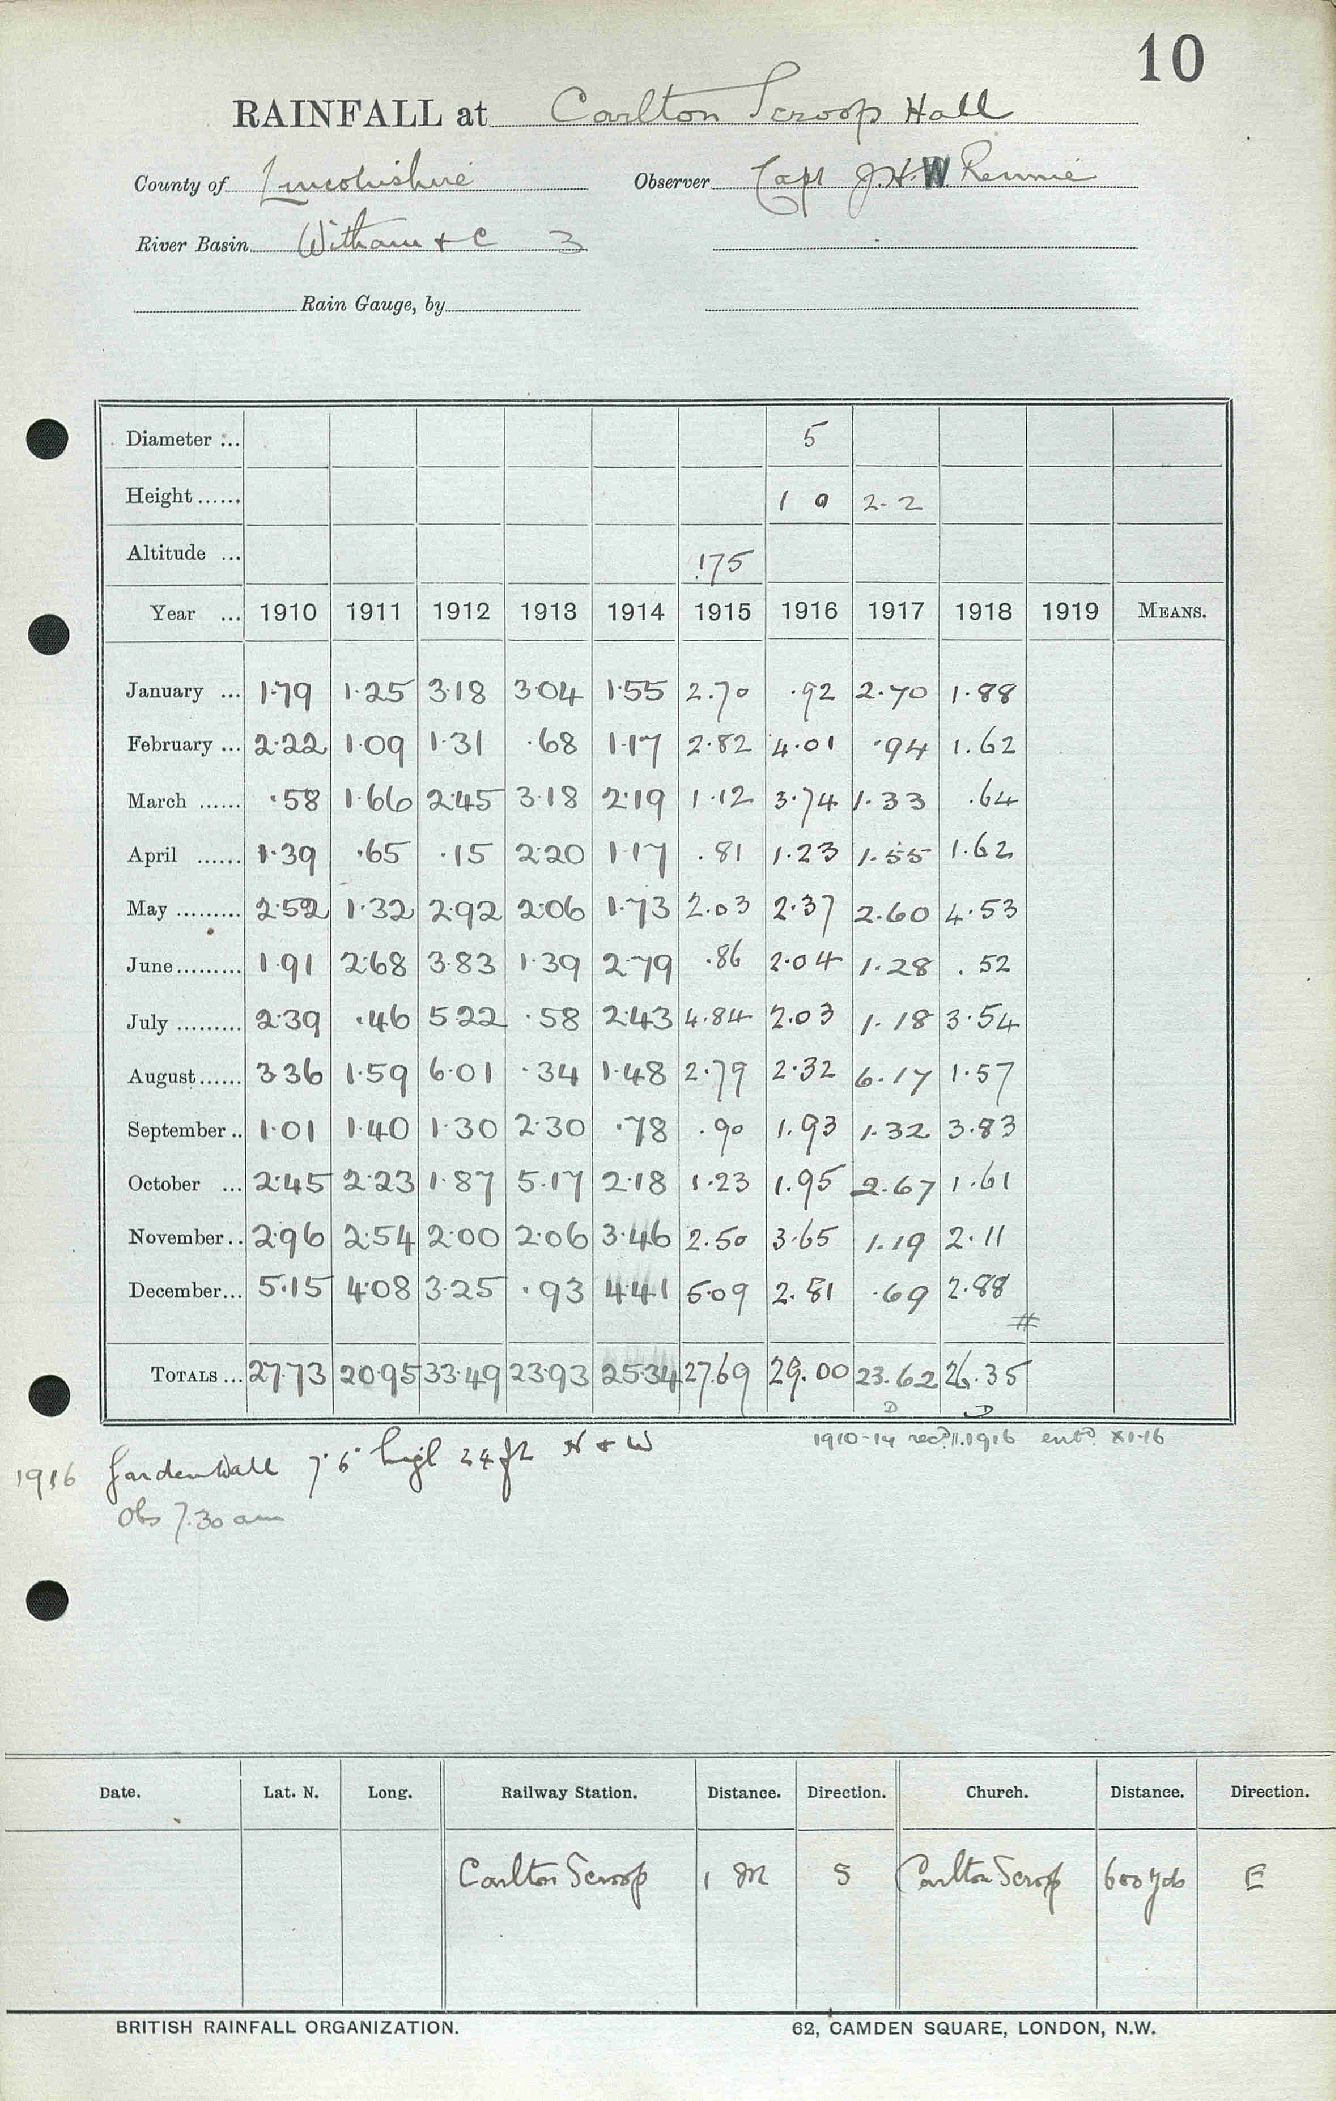 10
RAINFALL at Carlton Scroop Hall
County of Lincolnshire Observer Capt J.H.W. Rennie
River Basin Witham & C 3
Rain Gauge, by
Diameter ... 5
Height ...... 1 0 2.2
Altitude ... !75
Year ... 1910 1911 1912 1913 1914 1915 1916 1917 1918 1919 MEANS.
January ... 1.79 1.25 3.18 3.04 1.55 2.70 .92 2.70 1.88
February ... 2.22 1.09 1.31 .68 1.17 2.82 4.01 .94 1.62
March ...... .58 1.66 2.45 3.18 2.19 1.12 3.74 1.33 .64
April ...... 1.39 .65 .15 2.20 1.17 .81 1.23 1.55 1.62
May ......... 2.52 1.32 2.92 2.06 1.73 2.03 2.37 2.60 4.53
June ......... 1.91 2.68 3.83 1.39 2.79 .86 2.04 1.28 .52
July ......... 2.39 .46 5.22 .58 2.43 4.84 2.03 1.18 3.54
August ...... 3.36 1.59 6.01 .34 1.48 2.79 2.32 6.17 1.57
September .. 1.01 1.40 1.30 2.30 .78 .90 1.93 1.32 3.83
October ... 2.45 2.23 1.87 5.17 2.18 1.23 1.95 2.67 1.61
November .. 2.96 2.54 2.00 2.06 3.46 2.50 3.65 1.19 2.11
December ... 5.15 4.08 3.25 .93 4.41 5.09 2.81 .69 2.88
#
TOTALS ... 27.73 20.95 33.49 23.93 25.34 27.69 29.00 23.62 26.35
D D
1910-14 recd. 11.1916 entd. XI-16
1916 Garden Wall 7'6" high 24 ft N & W
Obs 7.30 am
Date. Lat. N. Long. Railway Station. Distance. Direction. Church. Distance. Direction.
Carlton Scroop 1 M S Carlton Scroop 600 yds E
BRITISH RAINFALL ORGANIZATION. 62, CAMDEN SQUARE, LONDON, N.W.